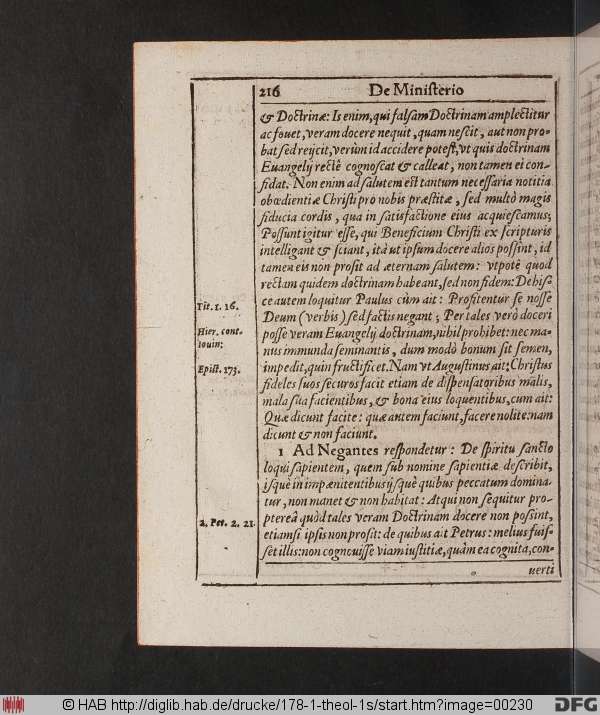 216 De Ministerio
& Doctrinæ: Is enim, qui falsam Doctrinam amplectitur
ac fouet, veram docere nequit, quam nescit, aut non pro-
bat sed reijcit, verùm id accidere potest, vt quis doctrinam
Euangelij rectè cognoscat & calleat, non tamen ei con-
fidat. Non enim ad salutem est tantum necessaria notitia
obœdientiæ Christi pro nobis præstitæ, sed multò magis
fiducia cordis, qua in satisfactione eius acquiescamus;
Possunt igitur esse, qui Beneficium Christi ex scripturis
intelligant & sciant, ità ut ipsum docere alios possint, id
tamen eis non prosit ad æternam salutem: vtpotè quod
rectam quidem doctrinam habeant, sed non fidem: De his-
ce autem loquitur Paulus cùm ait: Profitentur se nosse
Deum (verbis) sed factis negant; Per tales verò doceri
posse veram Euangelij doctrinam, nihil prohibet: nec ma-
nus immunda seminantis, dum modò bonum sit semen,
impedit, quin fructificet. Nam vt Augustinus ait: Christus
fideles suos securos facit etiam de dispensatoribus malis,
mala sua facientibus, & bona eius loquentibus, cum ait:
Quæ dicunt facite: quæ autem faciunt, facere nolite: nam
dicunt & non faciunt.
1 Ad Negantes respondetur: De spiritu sancto
loqui sapientem, quem sub nomine sapientiæ describit,
isque in impœnitentibus ijsque quibus peccatum domina-
tur, non manet & non habitat: Atqui non sequitur pro-
ptereà quòd tales veram Doctrinam docere non possint,
etiamsi ipsis non prosit: de quibus ait Petrus: melius fuis-
set illis: non cognouisse viam iustitiæ, quàm ea cognita, con-
uerti
Tit. 1. 16.
Hier. cont.
Iouin:
Epist. 173.
2. Pet. 2. 21.
© HAB http://diglib.hab.de/drucke/178-1-theol-1s/start.htm?image=00230
DFG